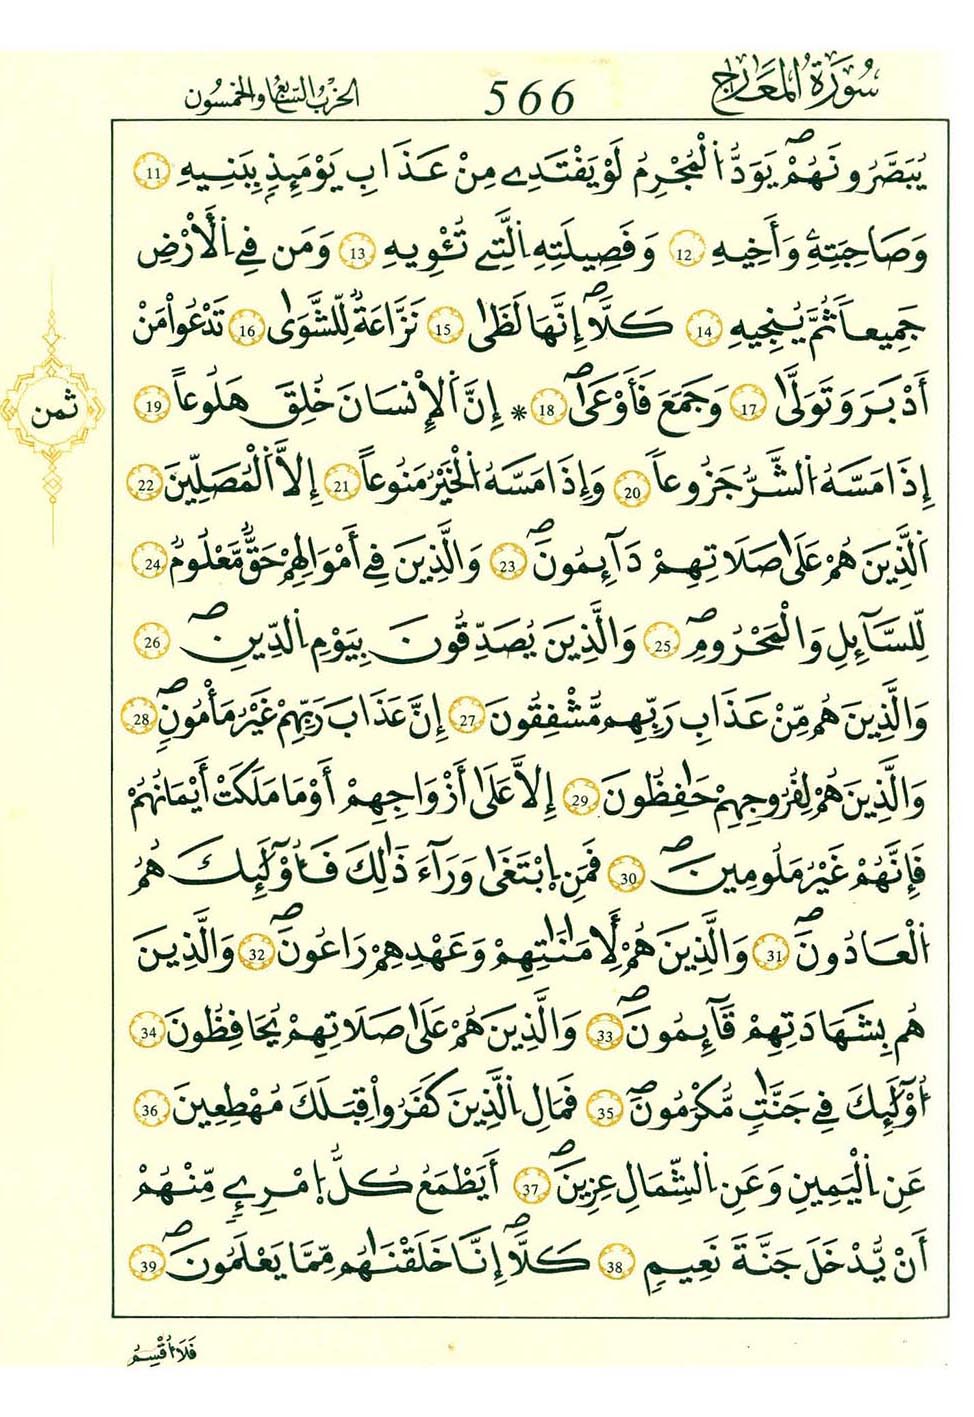 سُورَةُ الْمَعَارِجِ
566
الحِزْبُ السَّابِعُ وَالخَمْسُون
يُبَصَّرُونَهُمْ يَوَدُّ اُ۬لْمُجْرِمُ لَوْ يَفْتَدِے مِنْ عَذَابِ يَوْمَئِذِۢ بِبَنِيهِ 11
وَصَاحِبَتِهِۦ وَأَخِيهِ 12 وَفَصِيلَتِهِ اِ۬لتِے تُـْٔوِيهِ 13 وَمَن فِے اِ۬لْأَرْضِ
جَمِيعاٗ ثُمَّ يُنجِيهِ 14 كَلَّآۖ إِنَّهَا لَظَىٰ 15 نَزَّاعَةٞ لِّلشَّوَىٰ 16 تَدْعُواْ مَنْ
أَدْبَرَ وَتَوَلَّىٰ 17 وَجَمَعَ فَأَوْعَىٰٓۖ 18 * إِنَّ اَ۬لْإِنسَانَ خُلِقَ هَلُوعاً 19
ثمن
إِذَا مَسَّهُ اُ۬لشَّرُّ جَزُوعاٗ 20 وَإِذَا مَسَّهُ اُ۬لْخَيْرُ مَنُوعاً 21 إِلَّا اَ۬لْمُصَلِّينَ 22
اَ۬لذِينَ هُمْ عَلَىٰ صَلَاتِهِمْ دَآئِمُونَۖ 23 وَالَّذِينَ فِے أَمْوَالِهِمْ حَقّٞ مَّعْلُومٞ 24
لِّلسَّآئِلِ وَالْمَحْرُومِۖ 25 وَالَّذِينَ يُصَدِّقُونَ بِيَوْمِ اِ۬لدِّينِۖ 26
وَالَّذِينَ هُم مِّنْ عَذَابِ رَبِّهِم مُّشْفِقُونَ 27 إِنَّ عَذَابَ رَبِّهِمْ غَيْرُ مَأْمُونٖۖ 28
وَالَّذِينَ هُمْ لِفُرُوجِهِمْ حَٰفِظُونَ 29 إِلَّا عَلَىٰ أَزْوَاجِهِمْ أَوْ مَا مَلَكَتْ أَيْمَانُهُمْ
فَإِنَّهُمْ غَيْرُ مَلُومِينَۖ 30 فَمَنِ اِ۪بْتَغَىٰ وَرَآءَ ذَٰلِكَ فَأُوْلَٰٓئِكَ هُمُ
اُ۬لْعَادُونَۖ 31 وَالَّذِينَ هُمْ لِأَمَٰنَٰتِهِمْ وَعَهْدِهِمْ رَاعُونَۖ 32 وَالَّذِينَ
هُم بِشَهَادَتِهِمْ قَآئِمُونَۖ 33 وَالَّذِينَ هُمْ عَلَىٰ صَلَاتِهِمْ يُحَافِظُونَ 34
أُوْلَٰٓئِكَ فِے جَنَّٰتٖ مُّكْرَمُونَۖ 35 فَمَالِ اِ۬لذِينَ كَفَرُواْ قِبَلَكَ مُهْطِعِينَ 36
عَنِ اِ۬لْيَمِينِ وَعَنِ اِ۬لشِّمَالِ عِزِينَۖ 37 أَيَطْمَعُ كُلُّ اُ۪مْرِےٕٖ مِّنْهُمْ
أَنْ يُّدْخَلَ جَنَّةَ نَعِيمٖ 38 كَلَّآۖ إِنَّا خَلَقْنَٰهُم مِّمَّا يَعْلَمُونَۖ 39
فَلَا أُقْسِمُ